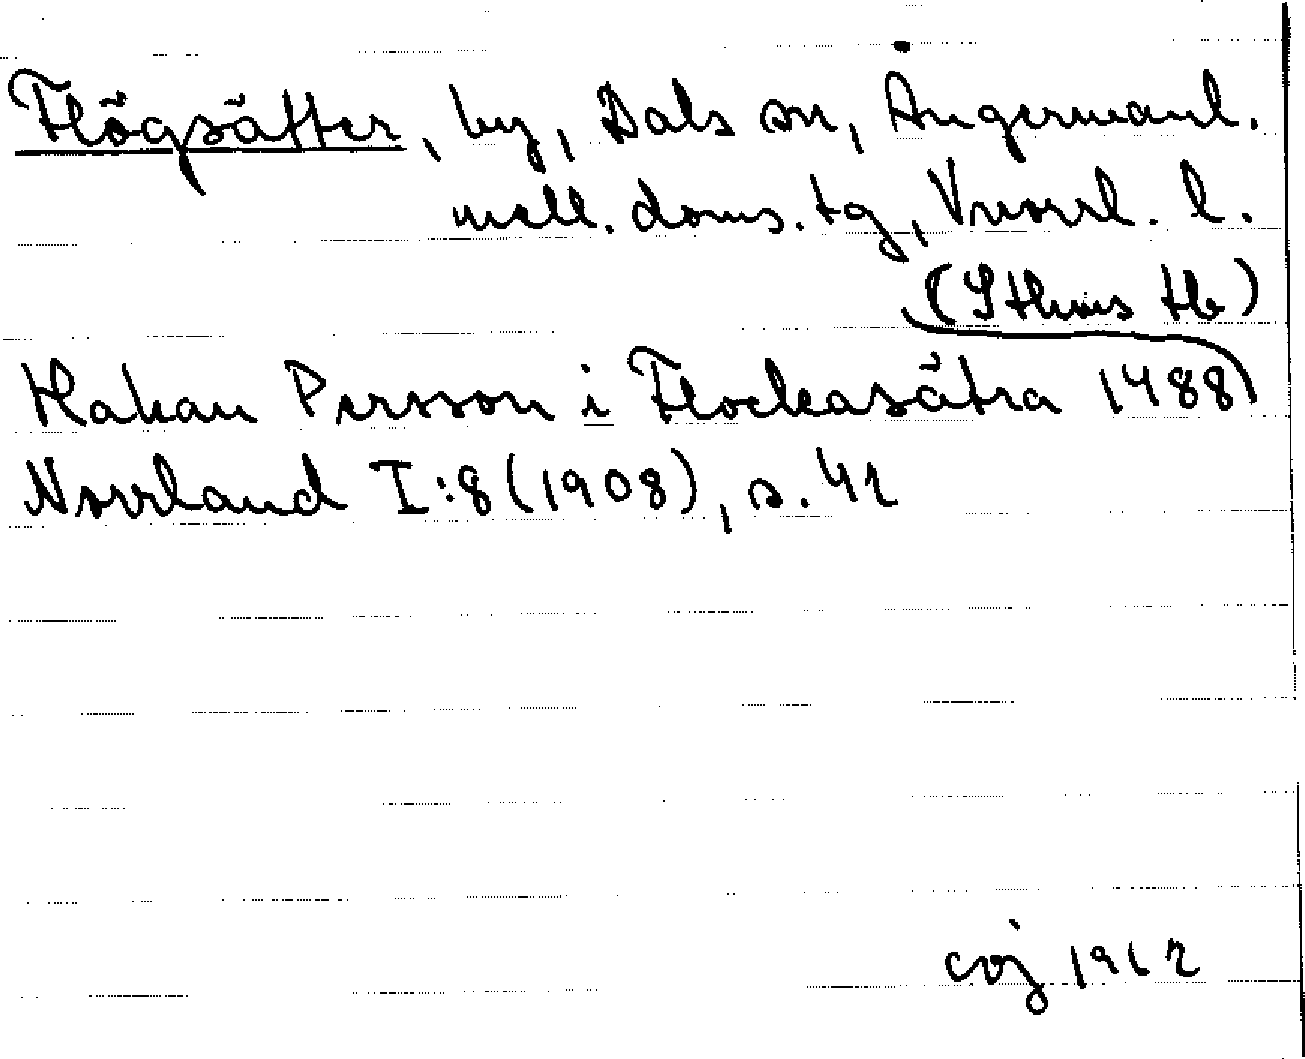 Flögsätter, by, Dals sn, Ångermanl.
mell. doms. tg, Vnorrl. l.
(Sthms tb)
Hakan Persson i Flockasätra 1488
Norrland I:8 (1908), s. 42
coj 1962